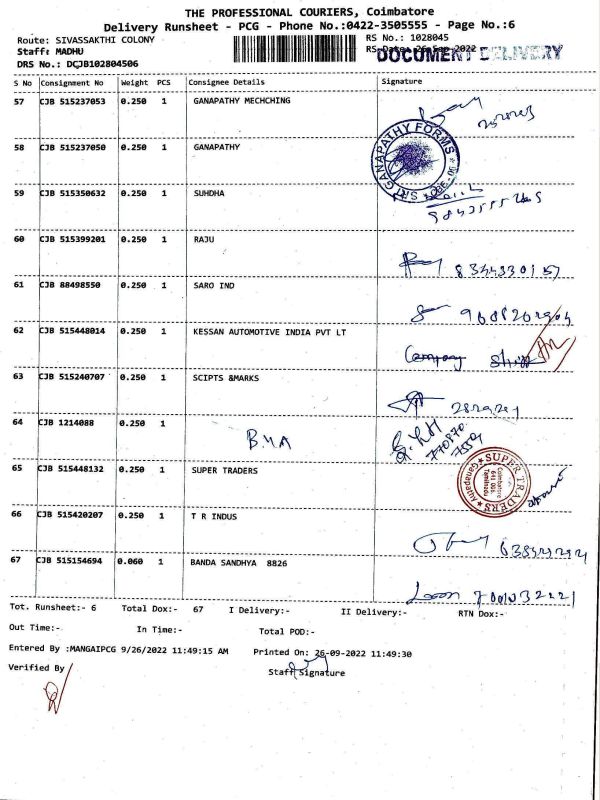 THE PROFESSIONAL COURIERS, Coimbatore
Delivery Runsheet - PCG - Phone No.:0422-3505555 - Page No.:6
Route: SIVASSAKTHI COLONY
RS No.: 1028045
Staff: MADHU
RS Date: 26-Sep-2022
DOCUMENT DELIVERY
DRS No.: DCJB102804506
S No Consignment No Weight PCS Consignee Details Signature
57 CJB 515237053 0.250 1 GANAPATHY MECHCHING
58 CJB 515237050 0.250 1 GANAPATHY
SRI GANAPATHY FORMS
59 CJB 515350632 0.250 1 SUHDHA
60 CJB 515399201 0.250 1 RAJU
61 CJB 88498550 0.250 1 SARO IND
62 CJB 515448014 0.250 1 KESSAN AUTOMOTIVE INDIA PVT LT
Company
63 CJB 515240707 0.250 1 SCIPTS &MARKS
64 CJB 1214088 0.250 1
65 CJB 515448132 0.250 1 SUPER TRADERS
SUPER TRADERS
Coimbatore
641 006.
Tamilnadu
66 CJB 515420207 0.250 1 T R INDUS
67 CJB 515154694 0.060 1 BANDA SANDHYA 8826
Tot. Runsheet:- 6 Total Dox:- 67 I Delivery:- II Delivery:- RTN Dox:-
Out Time:- In Time:- Total POD:-
Entered By :MANGAIPCG 9/26/2022 11:49:15 AM Printed On: 26-09-2022 11:49:30
Verified By Staff Signature